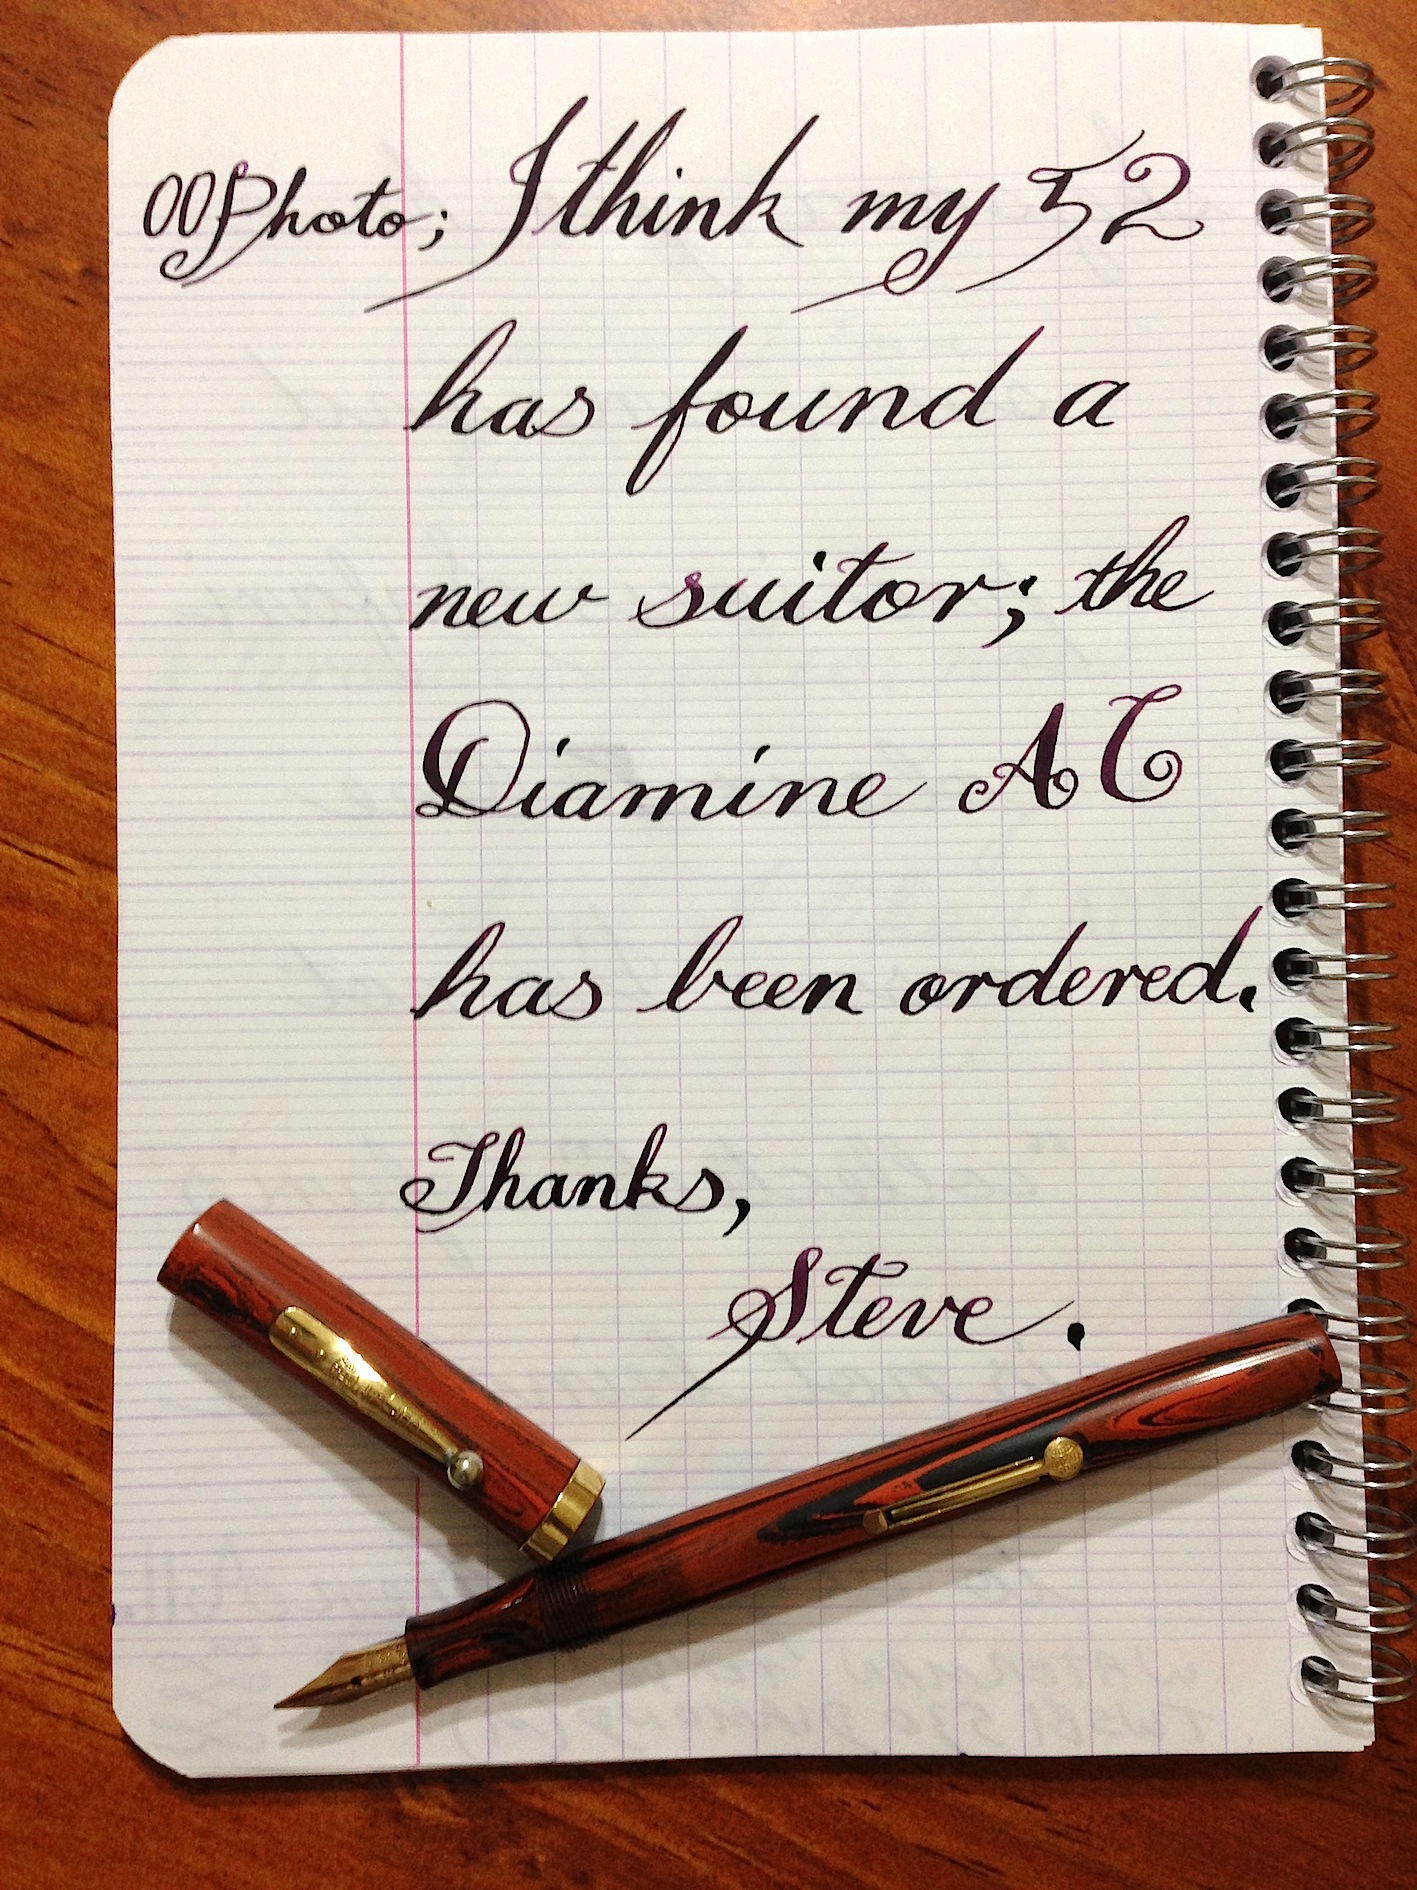 OOPhoto; I think my 52
has found a
new suitor; the
Diamine AC
has been ordered.
Thanks,
Steve.